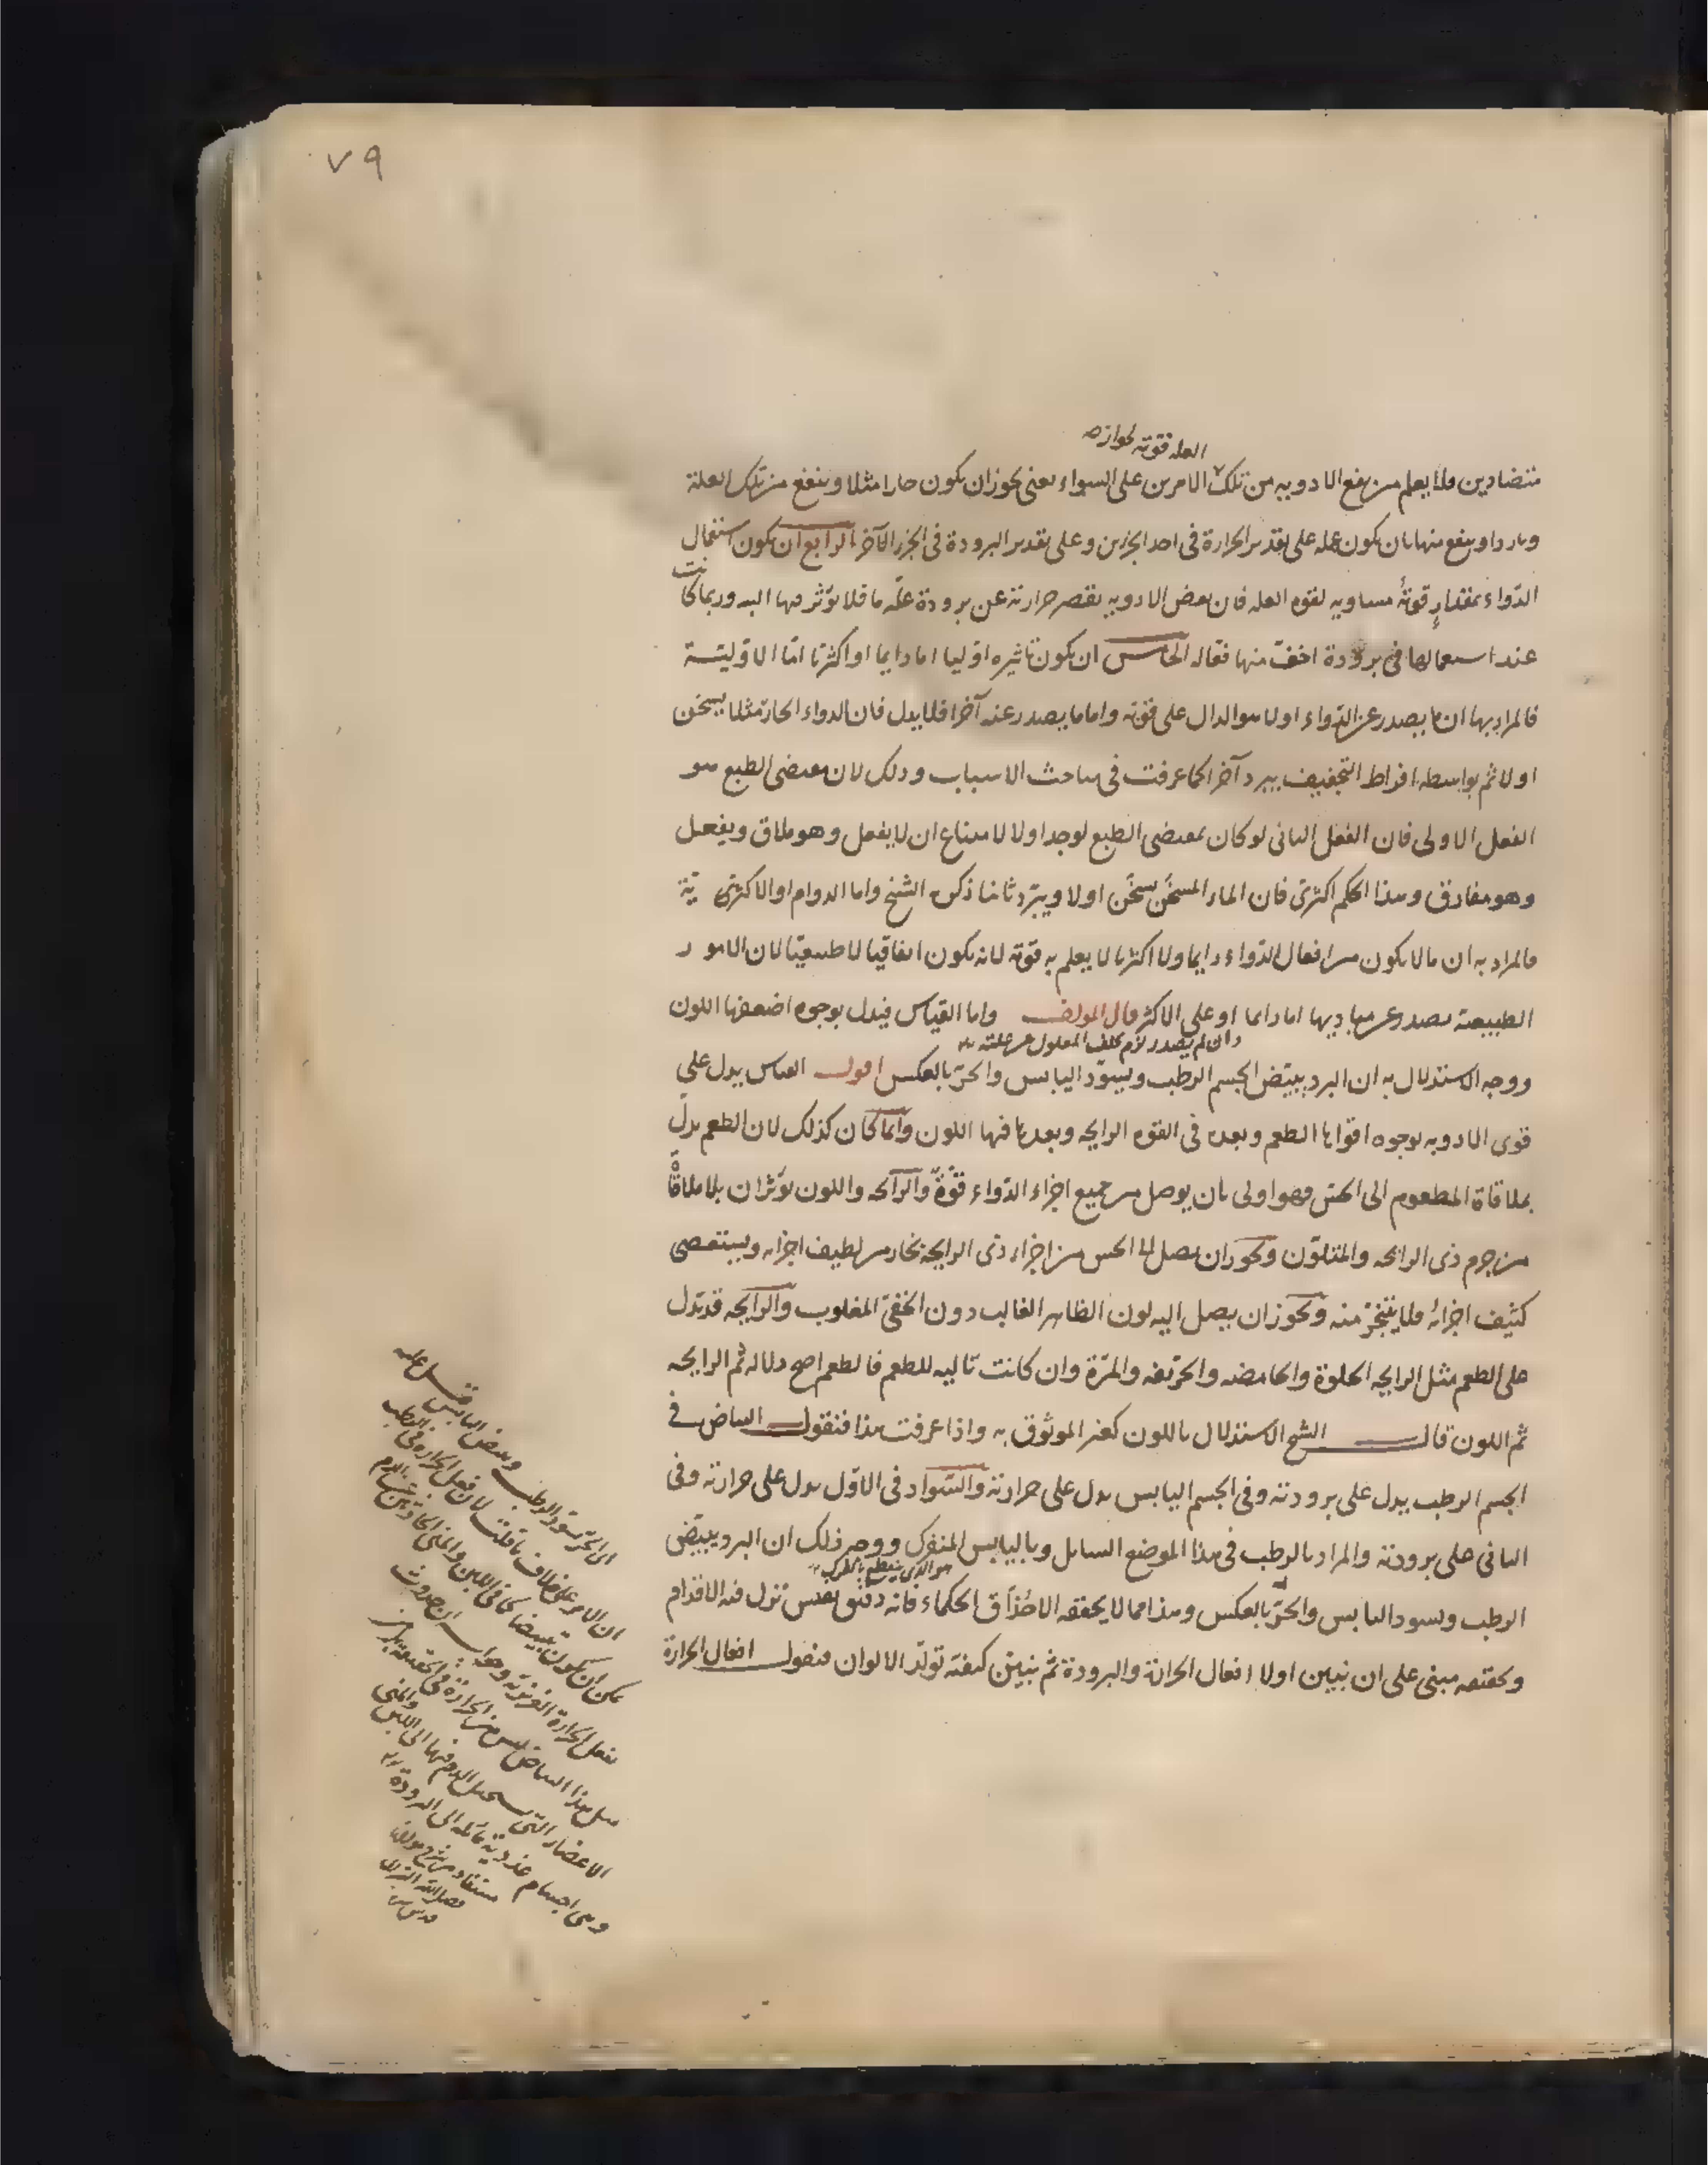 ٧٩
العله قوته لجوازه
متضادين فلا يعلم من نفع الادويه من تلك الامرين على السواء يعنى يجوز ان يكون حارا مثلا وينفع من تلك العلة
وباردا وينفع منها بان يكون عمله على تقدير الحرارة فى احد الجزءين وعلى تقدير البرودة فى الجزء الآخر الرابع ان يكون استعمال
الدّواء بمقدارٍ قوتهُ مساويه لقوه العله فان بعض الادويه يقصر حرارته عن برودة علّه ما فلا يؤثر فيها البته وربما كانت
عند استعمالها فى برودة اخفّ منها فعاله الخامس ان يكون تاثيره اوّليا اما دايما او اكثريّا امّا الاوّليّة
فالمراد بها ان ما يصدر عن الدّواء اولا هو الدال على قوته واما ما يصدر عنه آخرا فلا يدل فان الدواء الحارّ مثلا يسخن
اولا ثم بواسطه افراط التجفيف يبرد آخرا كما عرفت فى مباحث الاسباب وذلك لان مقتضى الطبع هو
الفعل الاولى فان الفعل الثانى لو كان بمقتضى الطبع لوجد اولا لامتناع ان لا يفعل وهو ملاق ويفعل
وهو مفارق وهذا الحكم اكثرى فان الماء المسخّن يسخّن اولا ويبرّد ثانيا ذكره الشيخ واما الدوام او الاكثريّة
فالمراد به ان ما لا يكون من افعال الدّواء دايما ولا اكثريا لا يعلم به قوّته لانه يكون اتفاقيا لا طبيعيّا لان الامور
الطبيعية تصدر عن مباديها اما دايما او على الاكثر قال المولف واما القياس فيدل بوجوه اضعفها اللون
وان لم يصدر لزم تخلف المعلول عن علته
ووجه الاستدلال به ان البرد يبيّض الجسم الرطب ويسوّد اليابس والحرّ بالعكس اقول القياس يدل على
قوى الادويه بوجوه اقواها الطعم وبعده فى القوه الرايحه وبعدها فيها اللون وانّما كان كذلك لان الطعم يدلّ
بملاقاة المطعوم الى الحسّ فهو اولى بان يوصل من جميع اجزاء الدّواء قوّةً والرّائحه واللون يؤثّران بلا ملاقاةٍ
من جرم ذى الرائحه والمتلوّن ويجوز ان يصل الى الحس من اجزاء ذى الرايحه بخار من لطيف اجزائه ويستعصى
كثيف اجزائه فلا يتبخّر منه ويجوز ان يصل اليه لون الظاهر الغالب دون الخفىّ المغلوب والرّايحه قد تدل
على الطعم مثل الرايحه الحلوة والحامضه والحرّيفه والمرّة وان كانت تاليه للطعم فالطعم اصح دلاله ثم الرايحه
ثم اللون قال الشيخ الاستدلال باللون كغير الموثوق به واذا عرفت هذا فنقول البياض فى
الجسم الرطب يدل على برودته وفى الجسم اليابس يدل على حرارته والسّواد فى الاوّل يدل على حرارته وفى
الثانى على برودته والمراد بالرطب فى هذا الموضع السايل وباليابس المنفرك ووجه ذلك ان البرد يبيّض
هو الذى ينقطع بالفرك
الرطب ويسود اليابس والحرّ بالعكس وهذا مما لا يحققه الا حُذّاق الحكماء فانه دقيق نفيس تزل فيه الاقدام
وتحقيقه مبنى على ان نبين اولا افعال الحرارة والبرودة ثم نبيّن كيفيّة تولّد الالوان فنقول افعال الحرارة
اى الحرّ تسوّد الرطب وتبيض اليابس قيل عليه
ان الامر على خلاف ما قلت لان فعل الحرارة فى الرطب
يمكن ان يكون تبييضا كما فى اللبن والمنى الحادثين عن الدم
بفعل الحرارة الغريزية وجوابه ان حدوث
مثل هذا البياض ليس من الحرارة فى الحقيقة بل من
الاعضاء التى يستحيل الدم فيها الى اللبن والمنى
وهى اجسام غددية مائله الى البرودة
مستفاد من شرح مولانا
فضل الله التبريزى
قدس سره